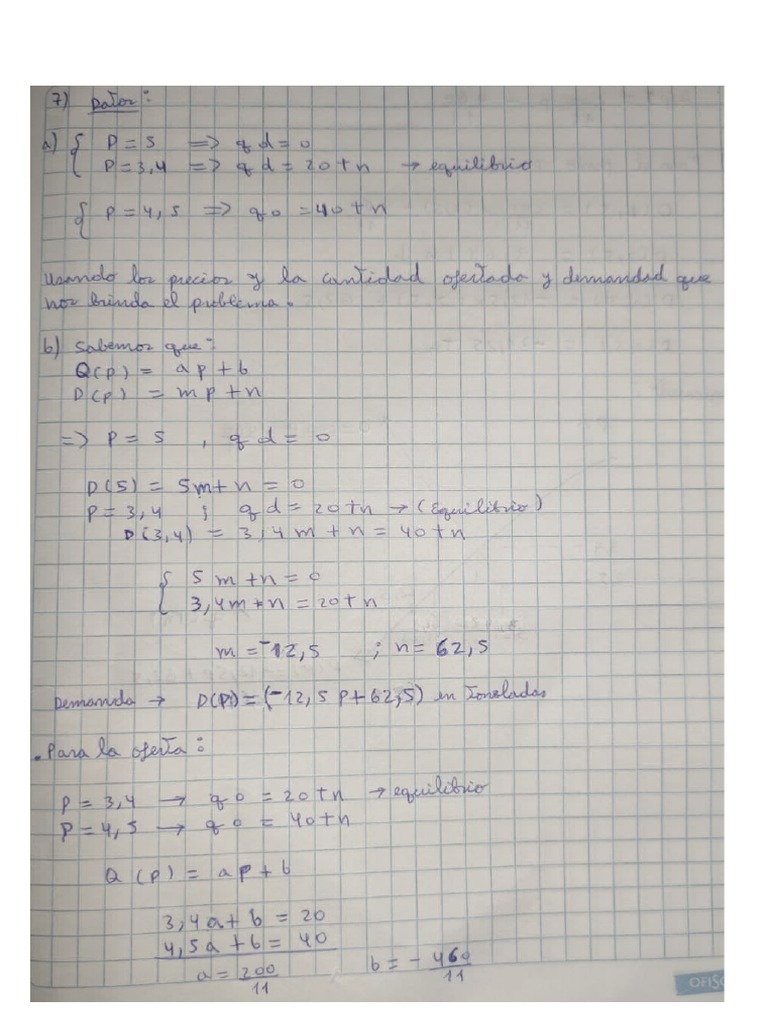 7) Datos:
a) { P = 5 => q d = 0
P = 3,4 => q d = 20 tn → equilibrio
{ P = 4,5 => q o = 40 tn
Usando los precios y la cantidad ofertada y demandad que
nos brinda el problema.
b) Sabemos que:
Q(p) = ap + b
D(p) = mp + n
=> P = 5 , q d = 0
D(5) = 5m + n = 0
P = 3,4 ; q d = 20 tn → (Equilibrio)
D(3,4) = 3,4 m + n = 40 tn
{ 5 m + n = 0
3,4m + n = 20 tn
m = -12,5 ; n = 62,5
Demanda → D(p) = (-12,5 p + 62,5) en Toneladas
. Para la oferta:
P = 3,4 → q o = 20 tn → equilibrio
P = 4,5 → q o = 40 tn
Q (p) = ap + b
3,4a + b = 20
4,5a + b = 40
a = 200/11 b = - 460/11
OFISC